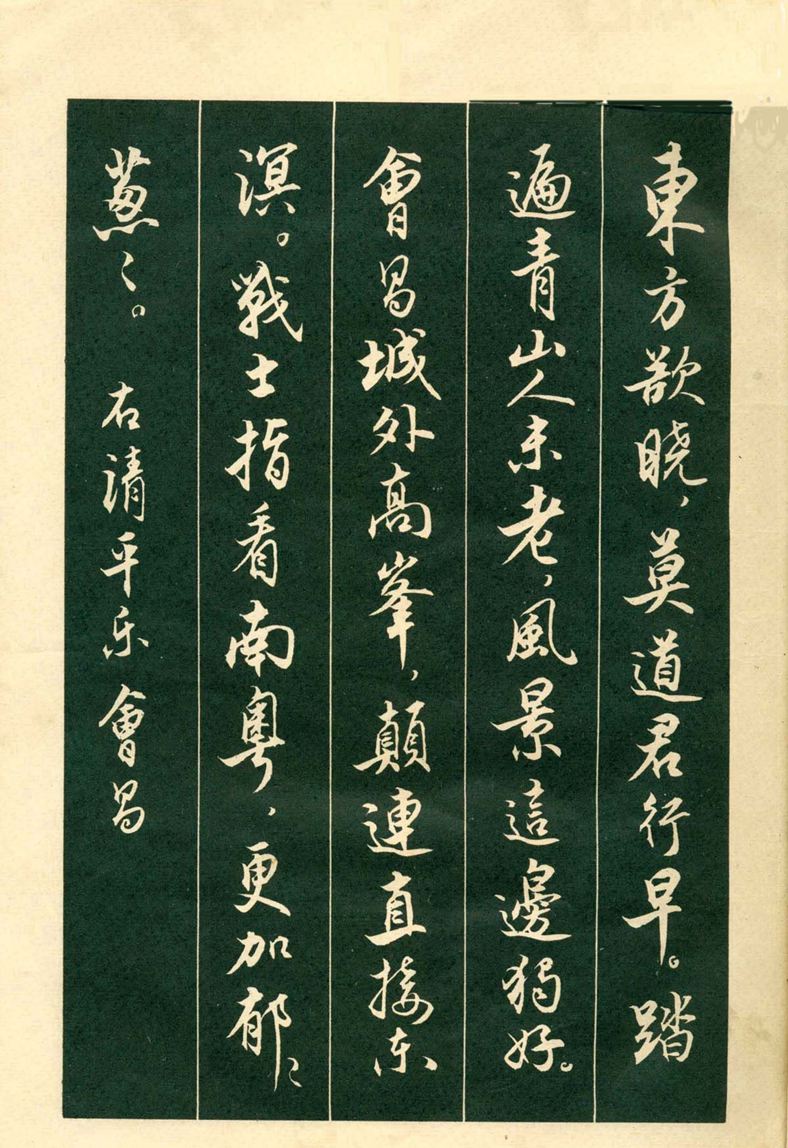 東方欲曉，莫道君行早。踏
遍青山人未老，風景這邊獨好。
會昌城外高峯，顛連直接东
溟。戰士指看南粵，更加郁〻
葱〻。 右清平乐會昌